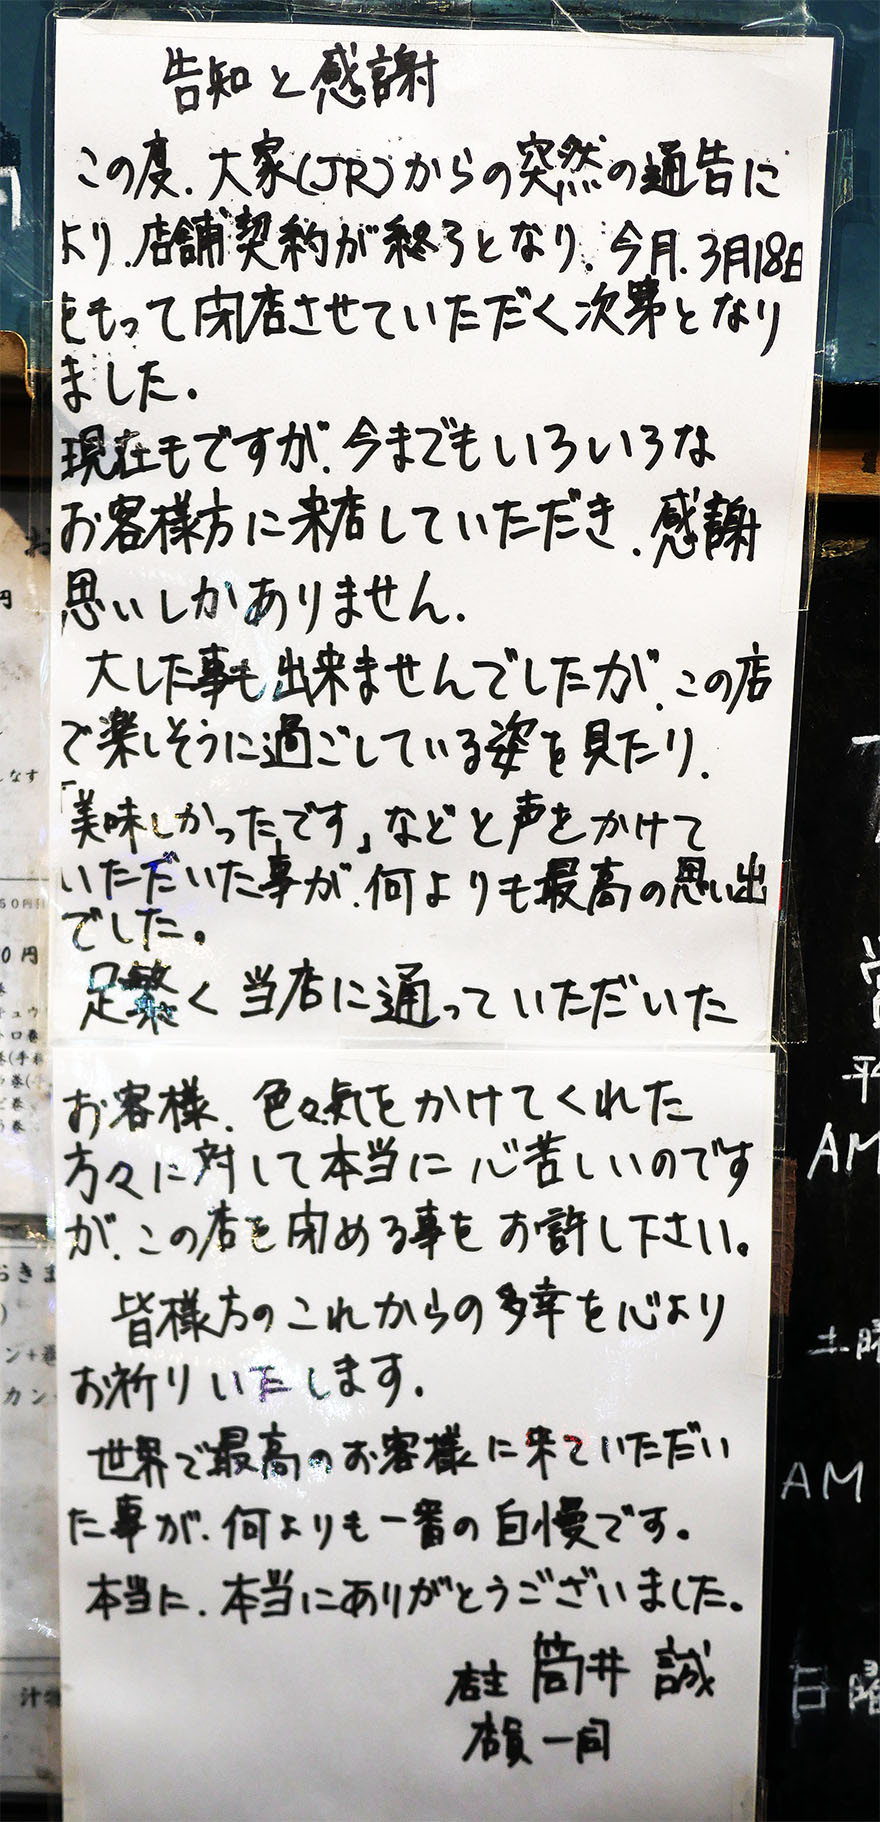 告知と感謝
この度、大家(JR)からの突然の通告に
より、店舗契約が終了となり、今月、3月18日
をもって閉店させていただく次第となり
ました。
現在もですが、今までもいろいろな
お客様方に来店していただき、感謝
思いしかありません。
大した事も出来ませんでしたが、この店
で楽しそうに過ごしている姿を見たり、
「美味しかったです」などと声をかけて
いただいた事が、何よりも最高の思い出
でした。
足繁く当店に通っていただいた
お客様、色々気をかけてくれた
方々に対して本当に心苦しいのです
が、この店を閉める事をお許し下さい。
皆様方のこれからの多幸を心より
お祈りいたします。
世界で最高のお客様に来ていただい
た事が、何よりも一番の自慢です。
本当に、本当にありがとうございました。
店主 筒井 誠
店員一同
AM
土曜
AM
日曜